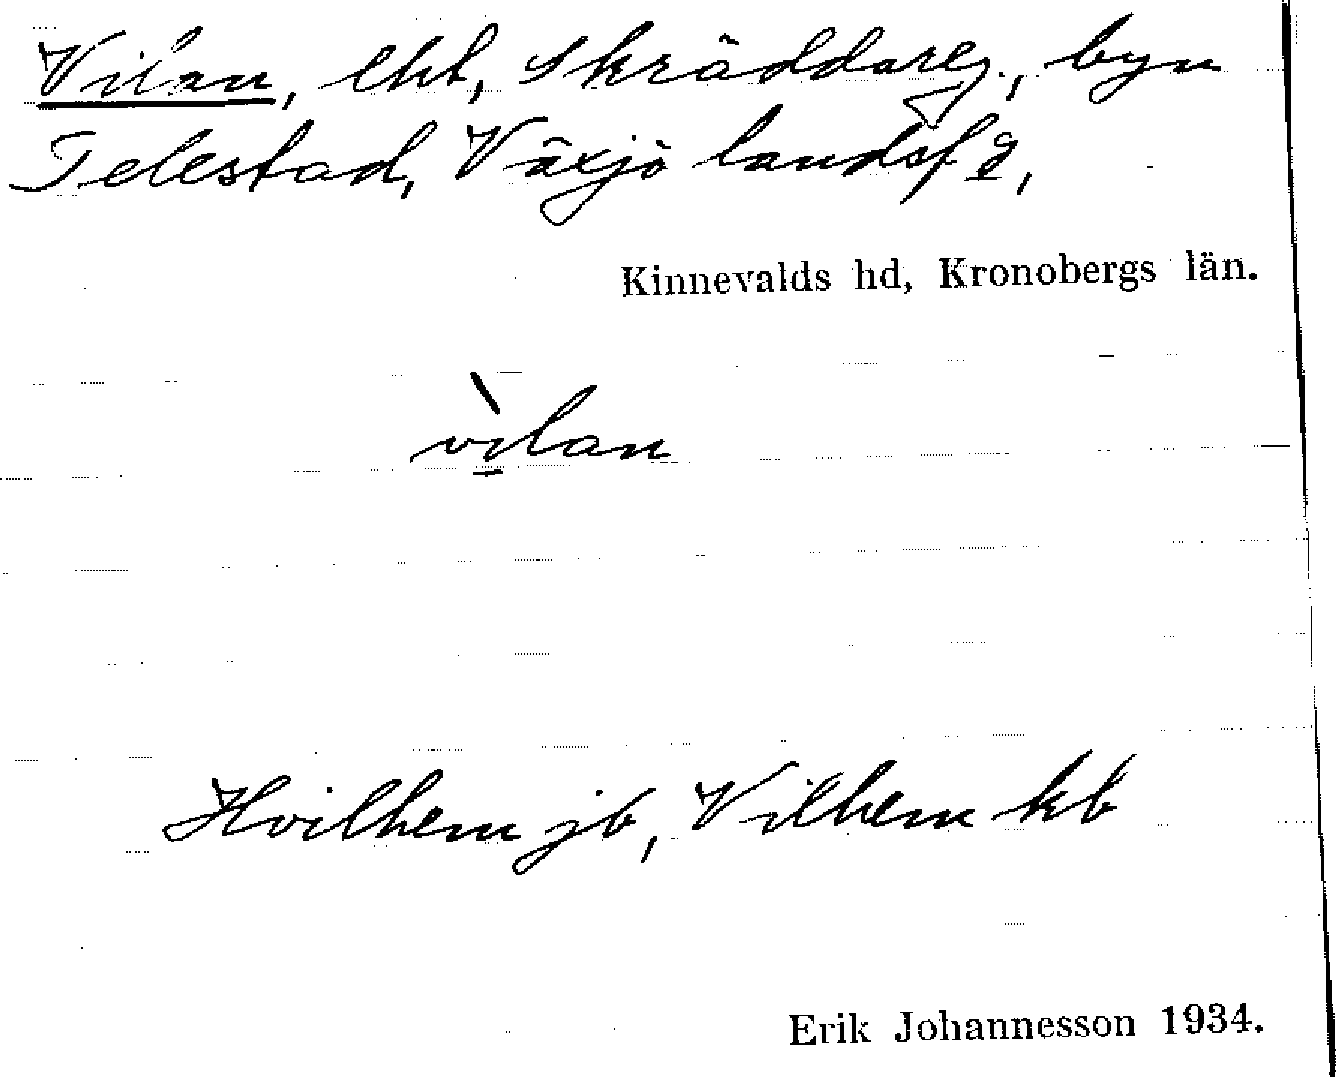 Vilan, lht, Skräddareg., byn
Telestad, Växjö landsf g,
Kinnevalds hd, Kronobergs län.
vìlan
Hvilhem jb, Vilhem kb
Erik Johannesson 1934.